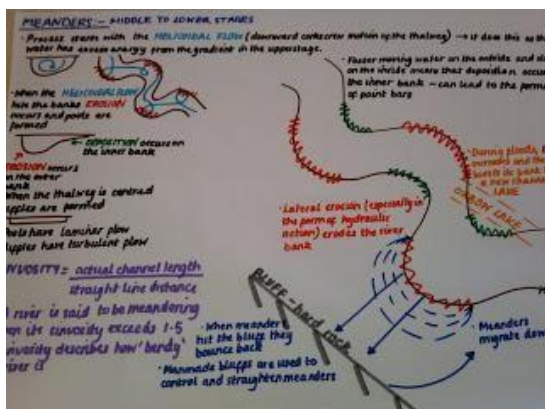 MEANDERS - MIDDLE TO LOWER STAGES
· Process starts with the HELICOIDAL FLOW (downward corkscrew motion of the thalweg) → it does this as the
water has excess energy from the gradient in the upperstage.
· When the HELICOIDAL FLOW
hits the banks EROSION
occurs and pools are
formed
DEPOSITION occurs on
the inner bank
EROSION occurs
on the outer
bank
When the thalweg is centred
riffles are formed
Pools have laminar flow
riffles have turbulent flow
SINUOSITY = actual channel length
straight line distance
A river is said to be meandering
when its sinuosity exceeds 1.5
sinuosity describes how 'bendy'
river is
· Faster moving water on the outside and
on the inside means that deposition
the inner bank - can lead to the
of point bars
· During floods,
and the
bursts its bank
a new channel
LAKE
OXBOW LAKE
· Lateral erosion (especially in
the form of hydraulic
action) erodes the river
bank
BLUFF - hard rock
· When meander
hit the bluffs they
bounce back
· Manmade bluffs are used to
control and straighten meanders
· Meanders
migrate